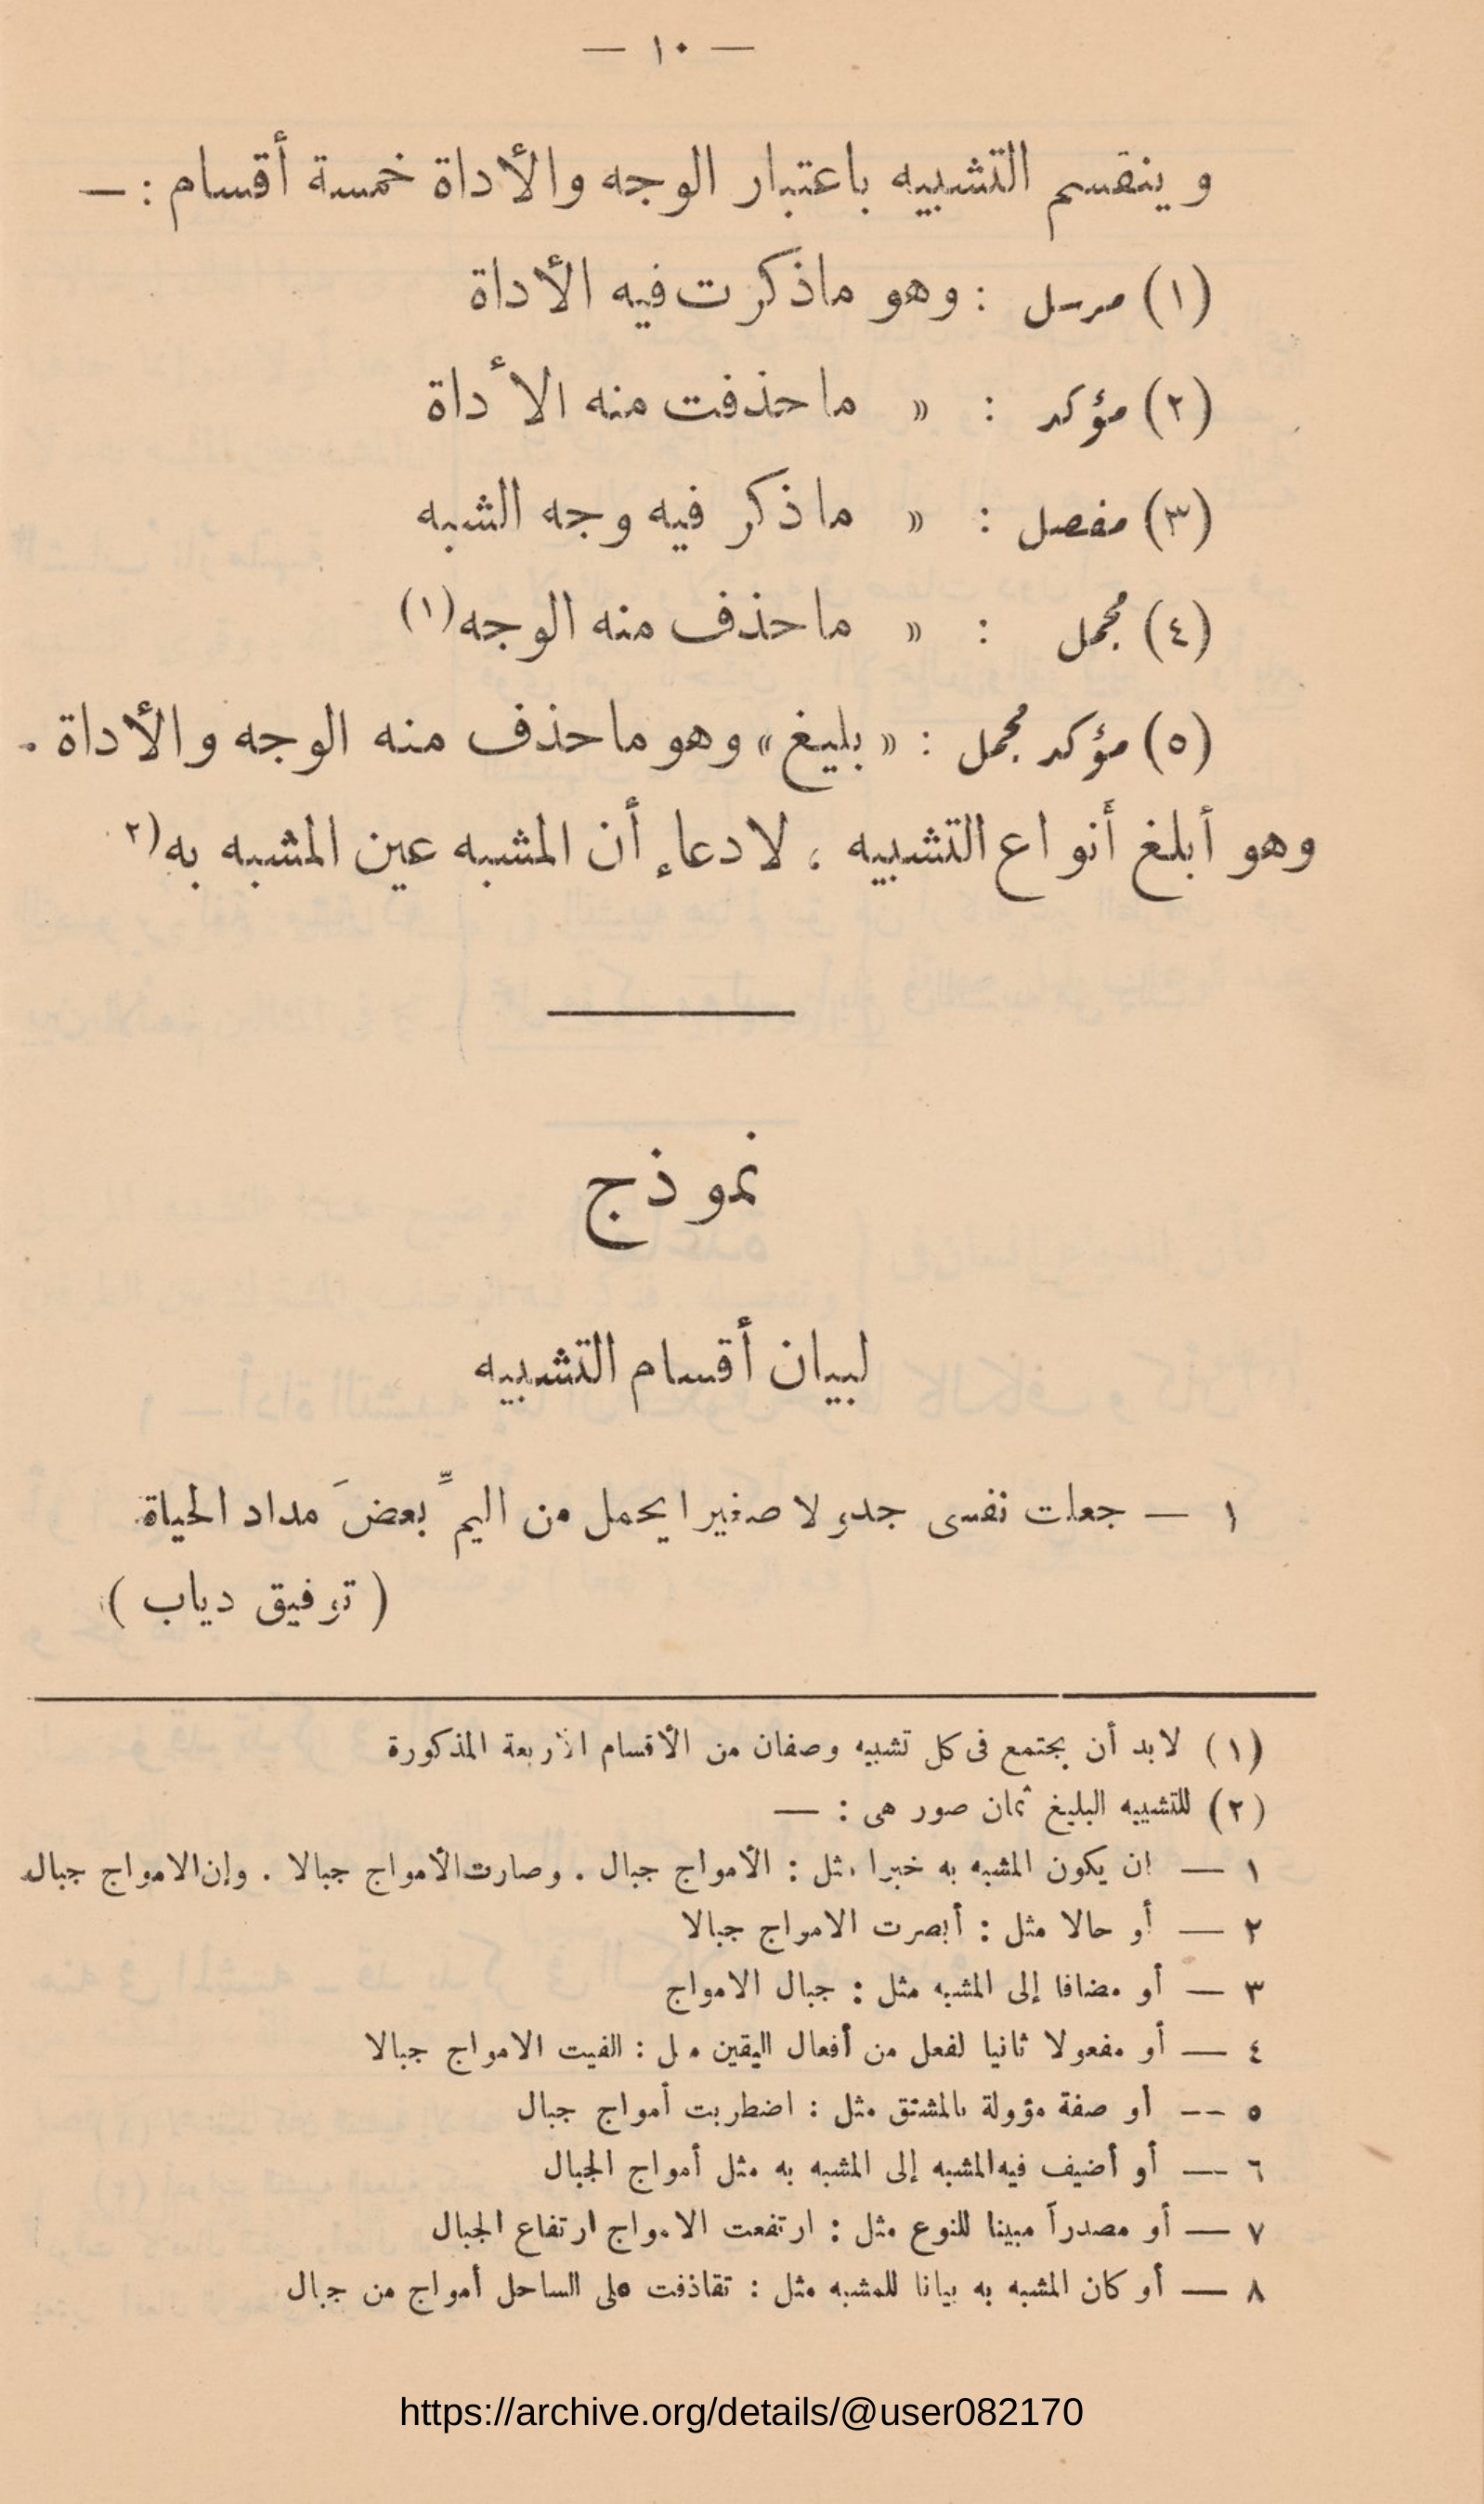 — ١٠ —
وينقسم التشبيه باعتبار الوجه والأداة خمسة أقسام : —
(١) مرسل : وهو ماذكرت فيه الأداة
(٢) مؤكد : » ما حذفت منه الأداة
(٣) مفصل : » ما ذكر فيه وجه الشبه
(٤) مجمل : » ما حذف منه الوجه(١)
(٥) مؤكد مجمل : « بليغ » وهو ما حذف منه الوجه والأداة .
وهو أبلغ أنواع التشبيه ، لادعاء أن المشبه عين المشبه به(٢
نموذج
لبيان أقسام التشبيه
١ — جعلت نفسى جدولا صغيرا يحمل من اليمِّ بعضَ مداد الحياة
( توفيق دياب )
(١) لابد أن يجتمع فى كل تشبيه وصفان من الأقسام الأربعة المذكورة
(٢) للتشبيه البليغ ثمان صور هى : —
١ — ان يكون المشبه به خبرا مثل : الأمواج جبال . وصارت الأمواج جبالا . وإن الامواج جبال
٢ — أو حالا مثل : أبصرت الامواج جبالا
٣ — أو مضافا إلى المشبه مثل : جبال الامواج
٤ — أو مفعولا ثانيا لفعل من أفعال اليقين مثل : الفيت الامواج جبالا
٥ -- أو صفة مؤولة بالمشتق مثل : اضطربت أمواج جبال
٦ — أو أضيف فيه المشبه إلى المشبه به مثل أمواج الجبال
٧ — أو مصدراً مبينا للنوع مثل : ارتفعت الامواج ارتفاع الجبال
٨ — أو كان المشبه به بيانا للمشبه مثل : تقاذفت على الساحل أمواج من جبال
https://archive.org/details/@user082170